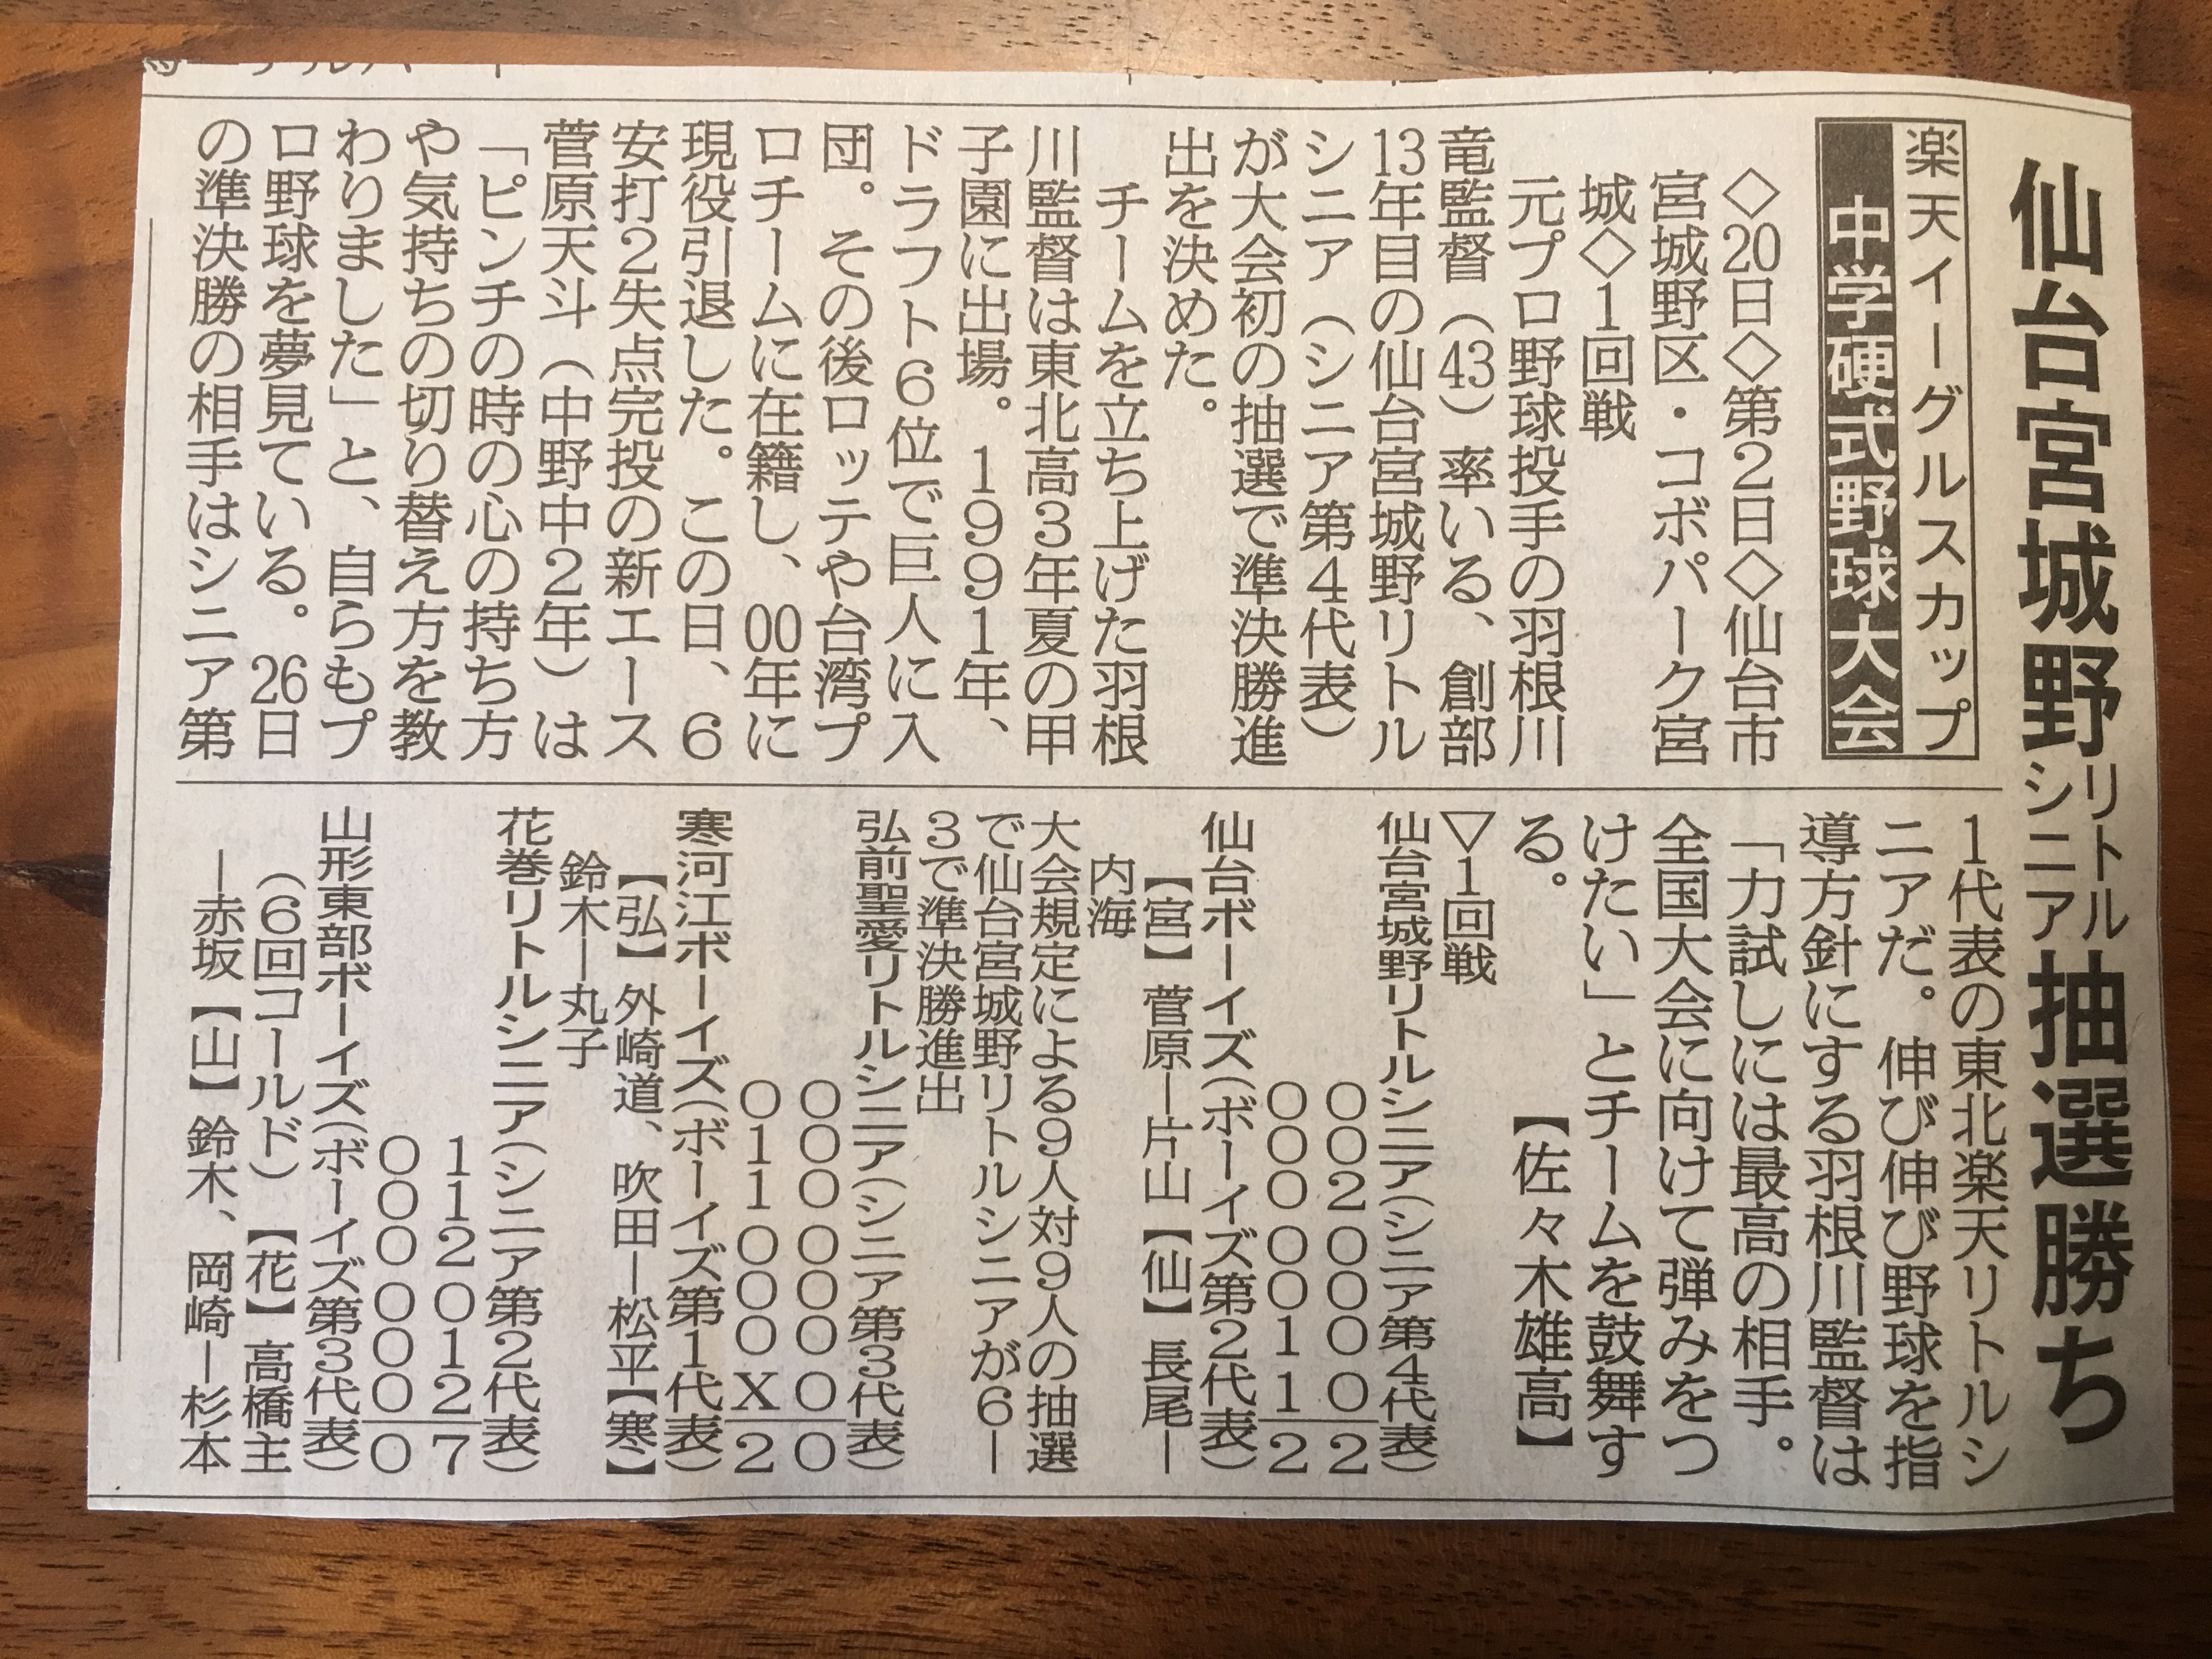 仙台宮城野リトルシニア抽選勝ち
楽天イーグルスカップ
中学硬式野球大会
◇20日◇第2日◇仙台市
宮城野区・コボパーク宮
城◇1回戦
元プロ野球投手の羽根川
竜監督（43）率いる、創部
13年目の仙台宮城野リトル
シニア（シニア第4代表）
が大会初の抽選で準決勝進
出を決めた。
チームを立ち上げた羽根
川監督は東北高3年夏の甲
子園に出場。1991年、
ドラフト6位で巨人に入
団。その後ロッテや台湾プ
ロチームに在籍し、00年に
現役引退した。この日、6
安打2失点完投の新エース
菅原天斗（中野中2年）は
「ピンチの時の心の持ち方
や気持ちの切り替え方を教
わりました」と、自らもプ
ロ野球を夢見ている。26日
の準決勝の相手はシニア第
1代表の東北楽天リトルシ
ニアだ。伸び伸び野球を指
導方針にする羽根川監督は
「力試しには最高の相手。
全国大会に向けて弾みをつ
けたい」とチームを鼓舞す
る。【佐々木雄高】
▽1回戦
仙台宮城野リトルシニア（シニア第4代表）
002 000 0 2
000 001 1 2
仙台ボーイズ（ボーイズ第2代表）
【宮】菅原―片山【仙】長尾―
内海
大会規定による9人対9人の抽選
で仙台宮城野リトルシニアが6―
3で準決勝進出
弘前聖愛リトルシニア（シニア第3代表）
000 000 0 0
011 000 X 2
寒河江ボーイズ（ボーイズ第1代表）
【弘】外崎道、吹田―松平【寒】
鈴木―丸子
花巻リトルシニア（シニア第2代表）
112 012 7
000 000 0
山形東部ボーイズ（ボーイズ第3代表）
（6回コールド）【花】高橋圭
―赤坂【山】鈴木、岡崎―杉本